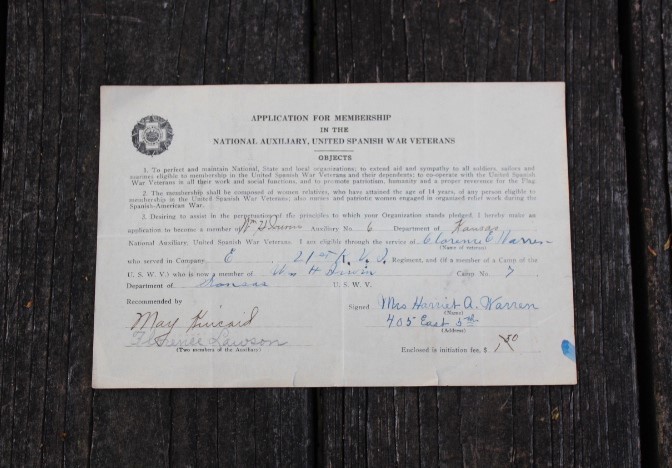 APPLICATION FOR MEMBERSHIP
IN THE
NATIONAL AUXILIARY, UNITED SPANISH WAR VETERANS
OBJECTS
1. To perfect and maintain National, State and local organizations; to extend aid and sympathy to all soldiers, sailors and
marines eligible to membership in the United Spanish War Veterans and their dependents; to co-operate with the United Spanish
War Veterans in all their work and social functions, and to promote patriotism, humanity and a proper reverence for the Flag
2. The membership shall be composed of women relatives, who have attained the age of 14 years, of any person eligible to
membership in the United Spanish War Veterans; also nurses and patriotic women engaged in organized relief work during the
Spanish-American War.
3. Desiring to assist in the perpetuation of the principles to which your Organization stands pledged, I hereby make an
application to become a member of Wm H Auxiliary No. 6 Department of Kansas
National Auxiliary, United Spanish War Veterans. I am eligible through the service of Clorence Warren
(Name of veteran)
who served in Company E 21st K. V. I. Regiment, and (if a member of a Camp of the
U. S. W. V.) who is now a member of Wm H Camp No. 7
Department of Kansas U. S. W. V.
Recommended by
Signed Mrs Harriet A. Warren
(Name)
May Kincaid
405 East 5th
(Address)
Florence Lawson
(Two members of the Auxiliary)
Enclosed is initiation fee, $ 1.50